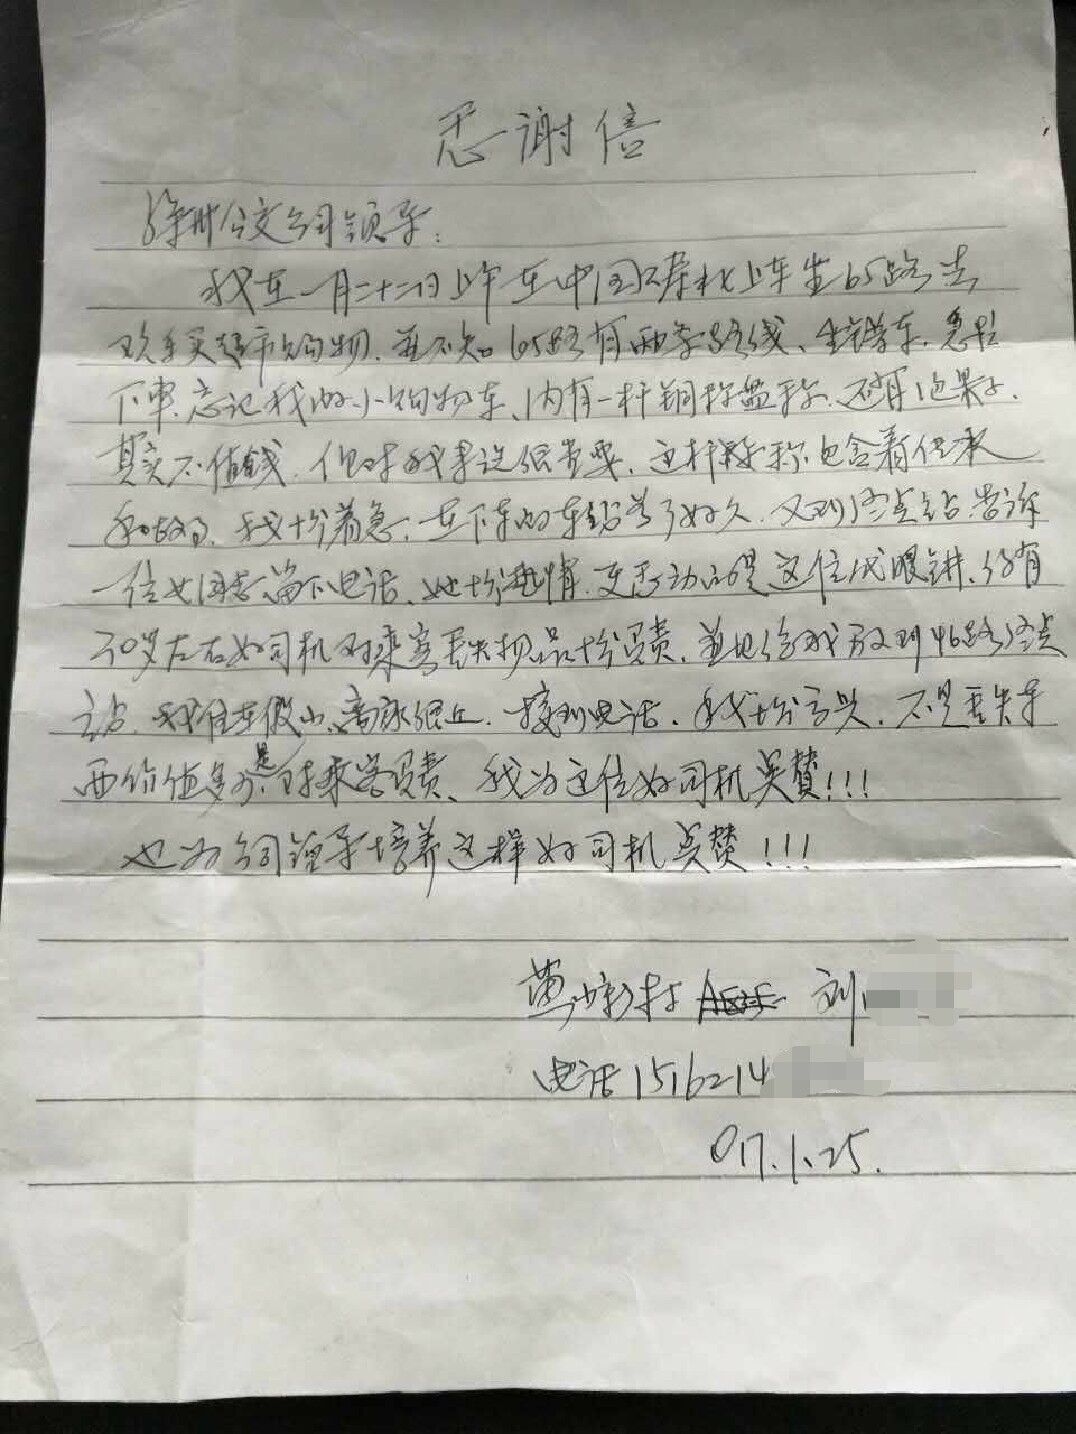 感谢信
徐州公交公司领导:
我在一月二十二日上午在中国 上车坐65路去
欢乐买超市购物,并不知65路有两条路线、坐错车,急忙
下車,忘记我的小购物车、内有一杆铜称盘称,还有1包果子,
其实不值钱,但对我来说很贵重,这杆 称包含着传承
和故事,我十分着急,在下车的车站等了好久,又到终点站,告诉
一位女同志留下电话,她十分热情,更感动的是这位戴眼鏡、约有
30岁左右的司机对乘客丢失物品十分负责,并也给我放到46路终点
站,我住在假山,离家很近,接到电话,我十分高兴,不是丢失东
西价值多少,是对乘客负责、我为这位好司机点赞!!!
也为公司领导培养这样好司机点赞!!!
黄山新村 刘
电话1516214
017.1.25.